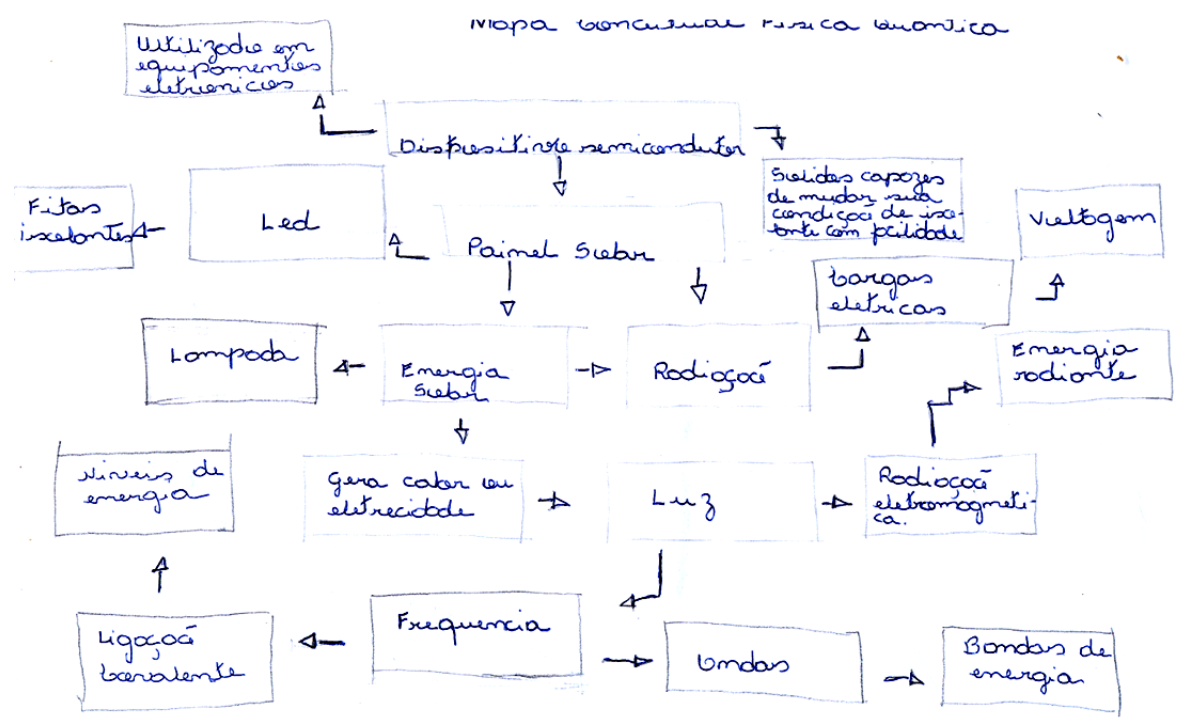 Mapa Conceitual Física Quantica
Utilizado em
equipamentos
eletronicos
Dispositivo semicondutor
Solidos capazes
de mudar sua
condição de iso-
lante com facilidade
Fitas
isolantes
Led
Painel Solar
Voltagem
Cargas
eletricas
Lampada
Energia
Solar
Radiação
Energia
radiante
Niveis de
energia
Gera calor ou
eletrecidade
Luz
Radiação
eletromagneti-
ca.
Ligação
Covalente
Frequencia
Ondas
Bandas de
energia